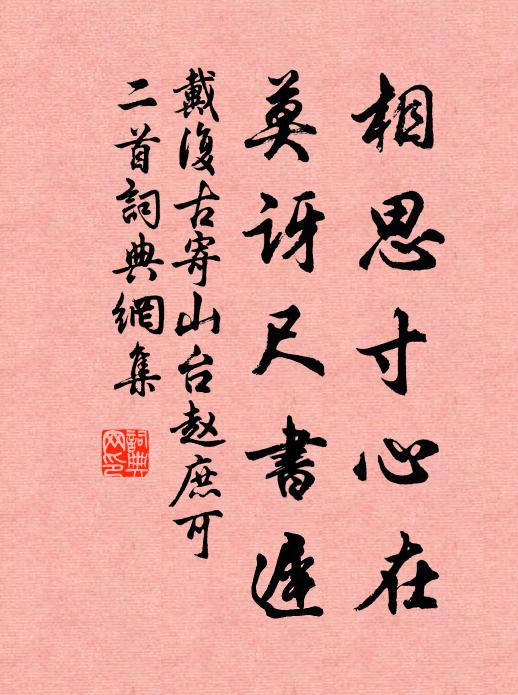 相思寸心在
莫訝尺書遲
戴復古寄山台赵庶可
二首詞典網集
詞典網印